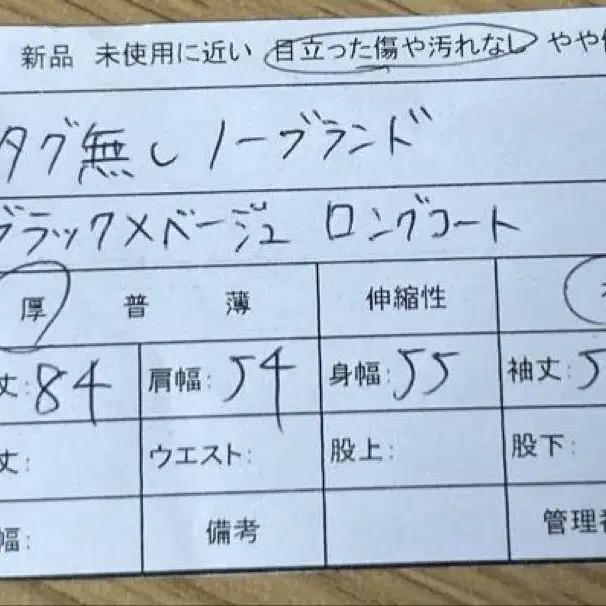 新品 未使用に近い 目立った傷や汚れなし やや
タグ無し ノーブランド
ブラック×ベージュ ロングコート
厚 普 薄 伸縮性
丈:84 肩幅:54 身幅:55 袖丈:5
丈: ウエスト: 股上: 股下:
幅: 備考 管理